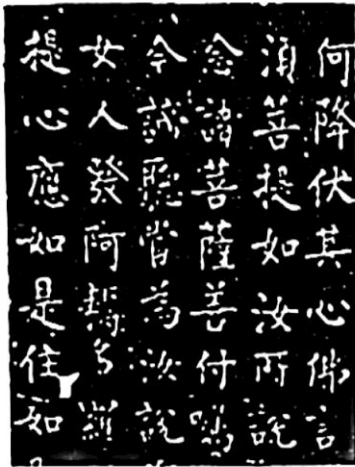 何降伏其心佛言
須菩提如汝所說
念諸菩薩善付囑
今諦聽當為汝說
女人發阿耨多羅
提心應如是住如